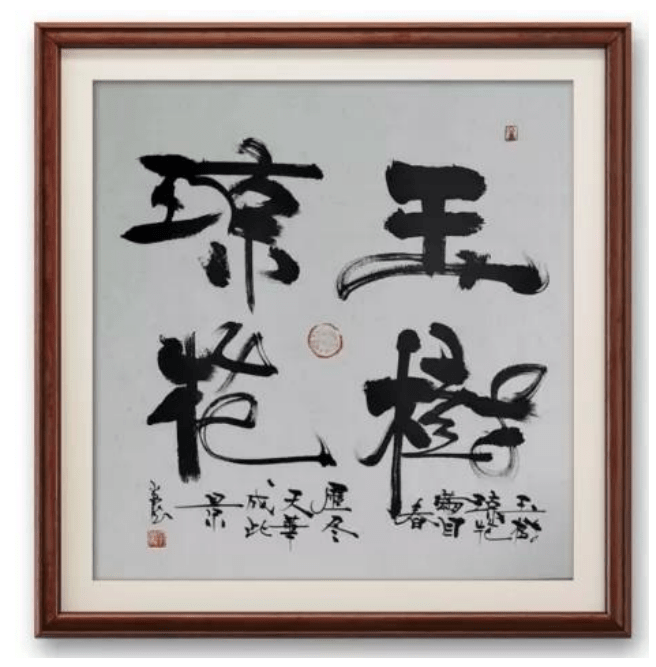 玉樹
琼
玉樹
琼
滿目
春
歷冬
天華
成此
景